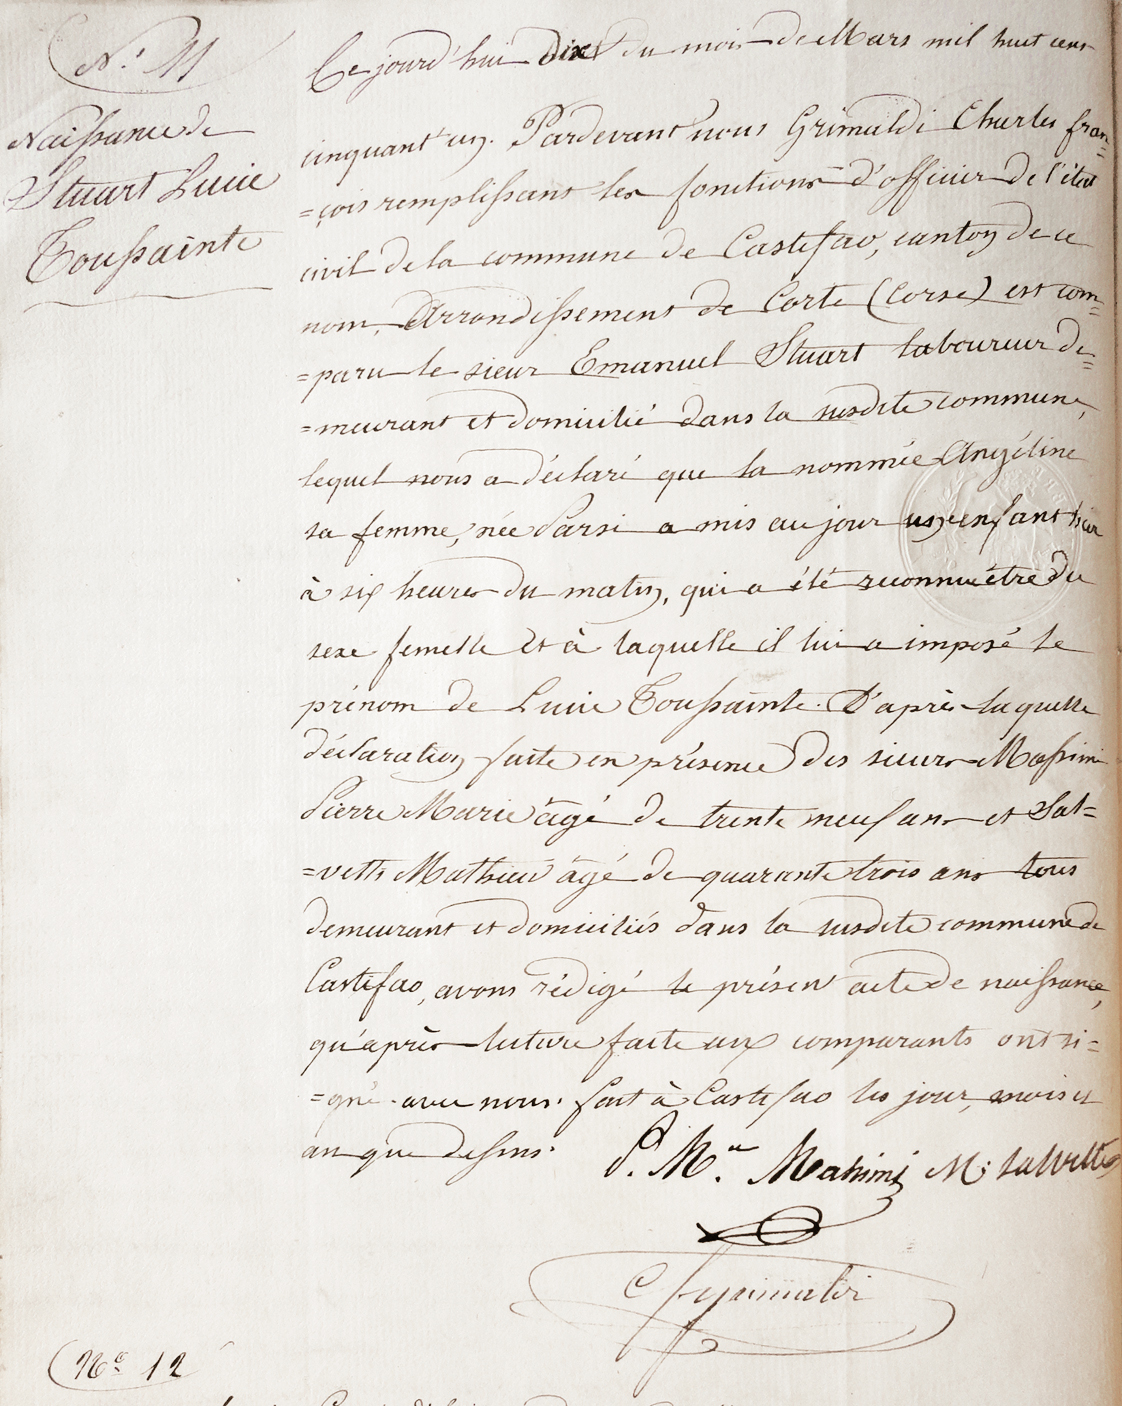 N.° 11
Naissance de
Stuart Lucie
Toussainte
Ce jourd'hui dix du mois de Mars mil huit cent
cinquant'un. Pardevant nous Grimaldi Charles fran=
=çois remplissant les fonctions d'officier de l'état
civil de la commune de Castifao, canton de ce
nom, Arrondissement de Corte (Corse) est com=
=paru le sieur Emanuel Stuart laboureur de=
=meurant et domicilié dans la susdite commune,
lequel nous a déclaré que la nommée Angéline
sa femme, née Parsi a mis au jour un enfant hier
à six heures du matin, qui a été reconnu être du
sexe femelle et à laquelle il lui a imposé le
prénom de Lucie Toussainte. D'après laquelle
déclaration faite en présence des sieurs Massimi
Pierre Marie âgé de trente neuf ans et Sal=
=vetti Mathieu âgé de quarante trois ans tous
demeurant et domiciliés dans la susdite commune de
Castifao, avons rédigé le présent acte de naissance,
qu'après lecture faite aux comparants ont si=
=gné avec nous. fait à Castifao les jour, mois et
an que dessus.
P. M.ie Massimi M: Salvetti
C f Grimaldi
N.° 12